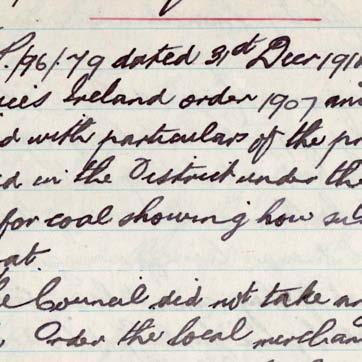 /96/79 dated 31st Decr 191
Ireland order 1907 an
d with particulars of the pr
d in the District under the
for coal showing how su
at
Council did not take a
Order the local merchan